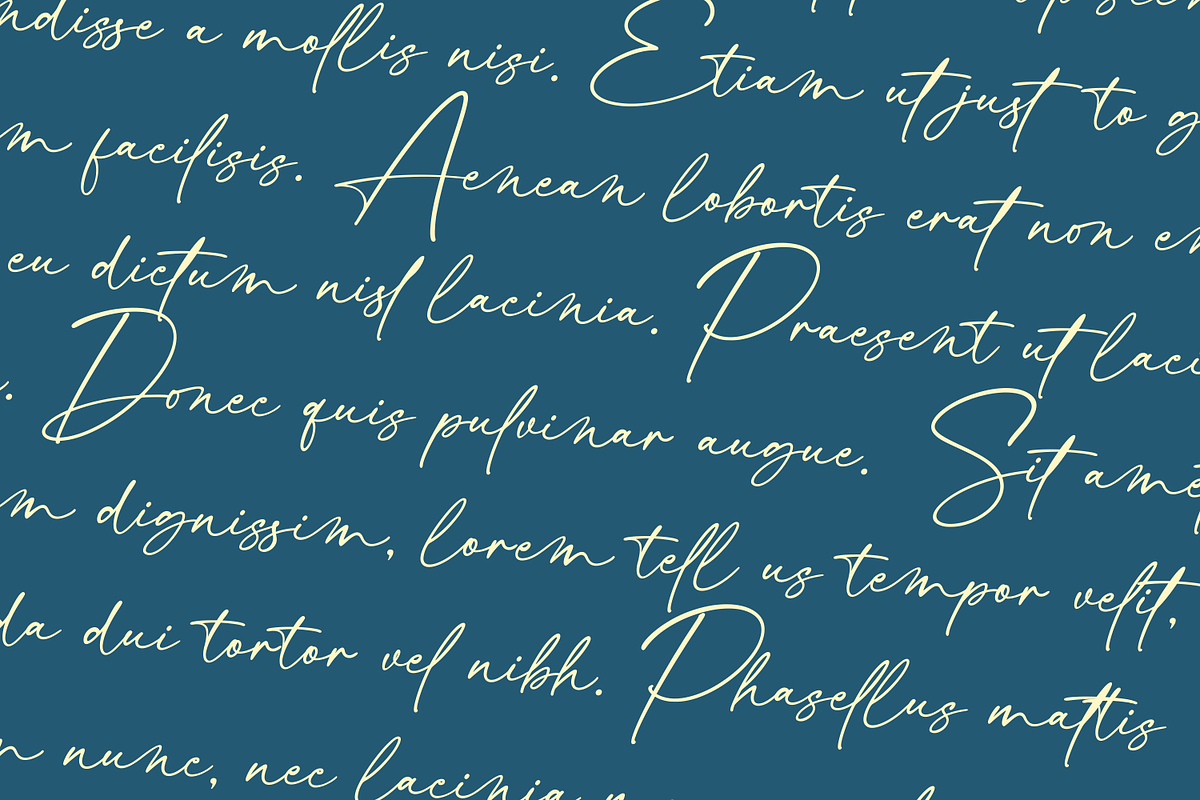 ndisse a mollis nisi. Etiam ut just to g
m facilisis. Aenean lobortis erat non
eu dictum nisl lacinia. Praesent ut laci
. Donec quis pulvinar augue. Sit ame
m dignissim, lorem tell us tempor velit,
da dui tortor vel nibh. Phasellus mattis
nunc, nec lacinia